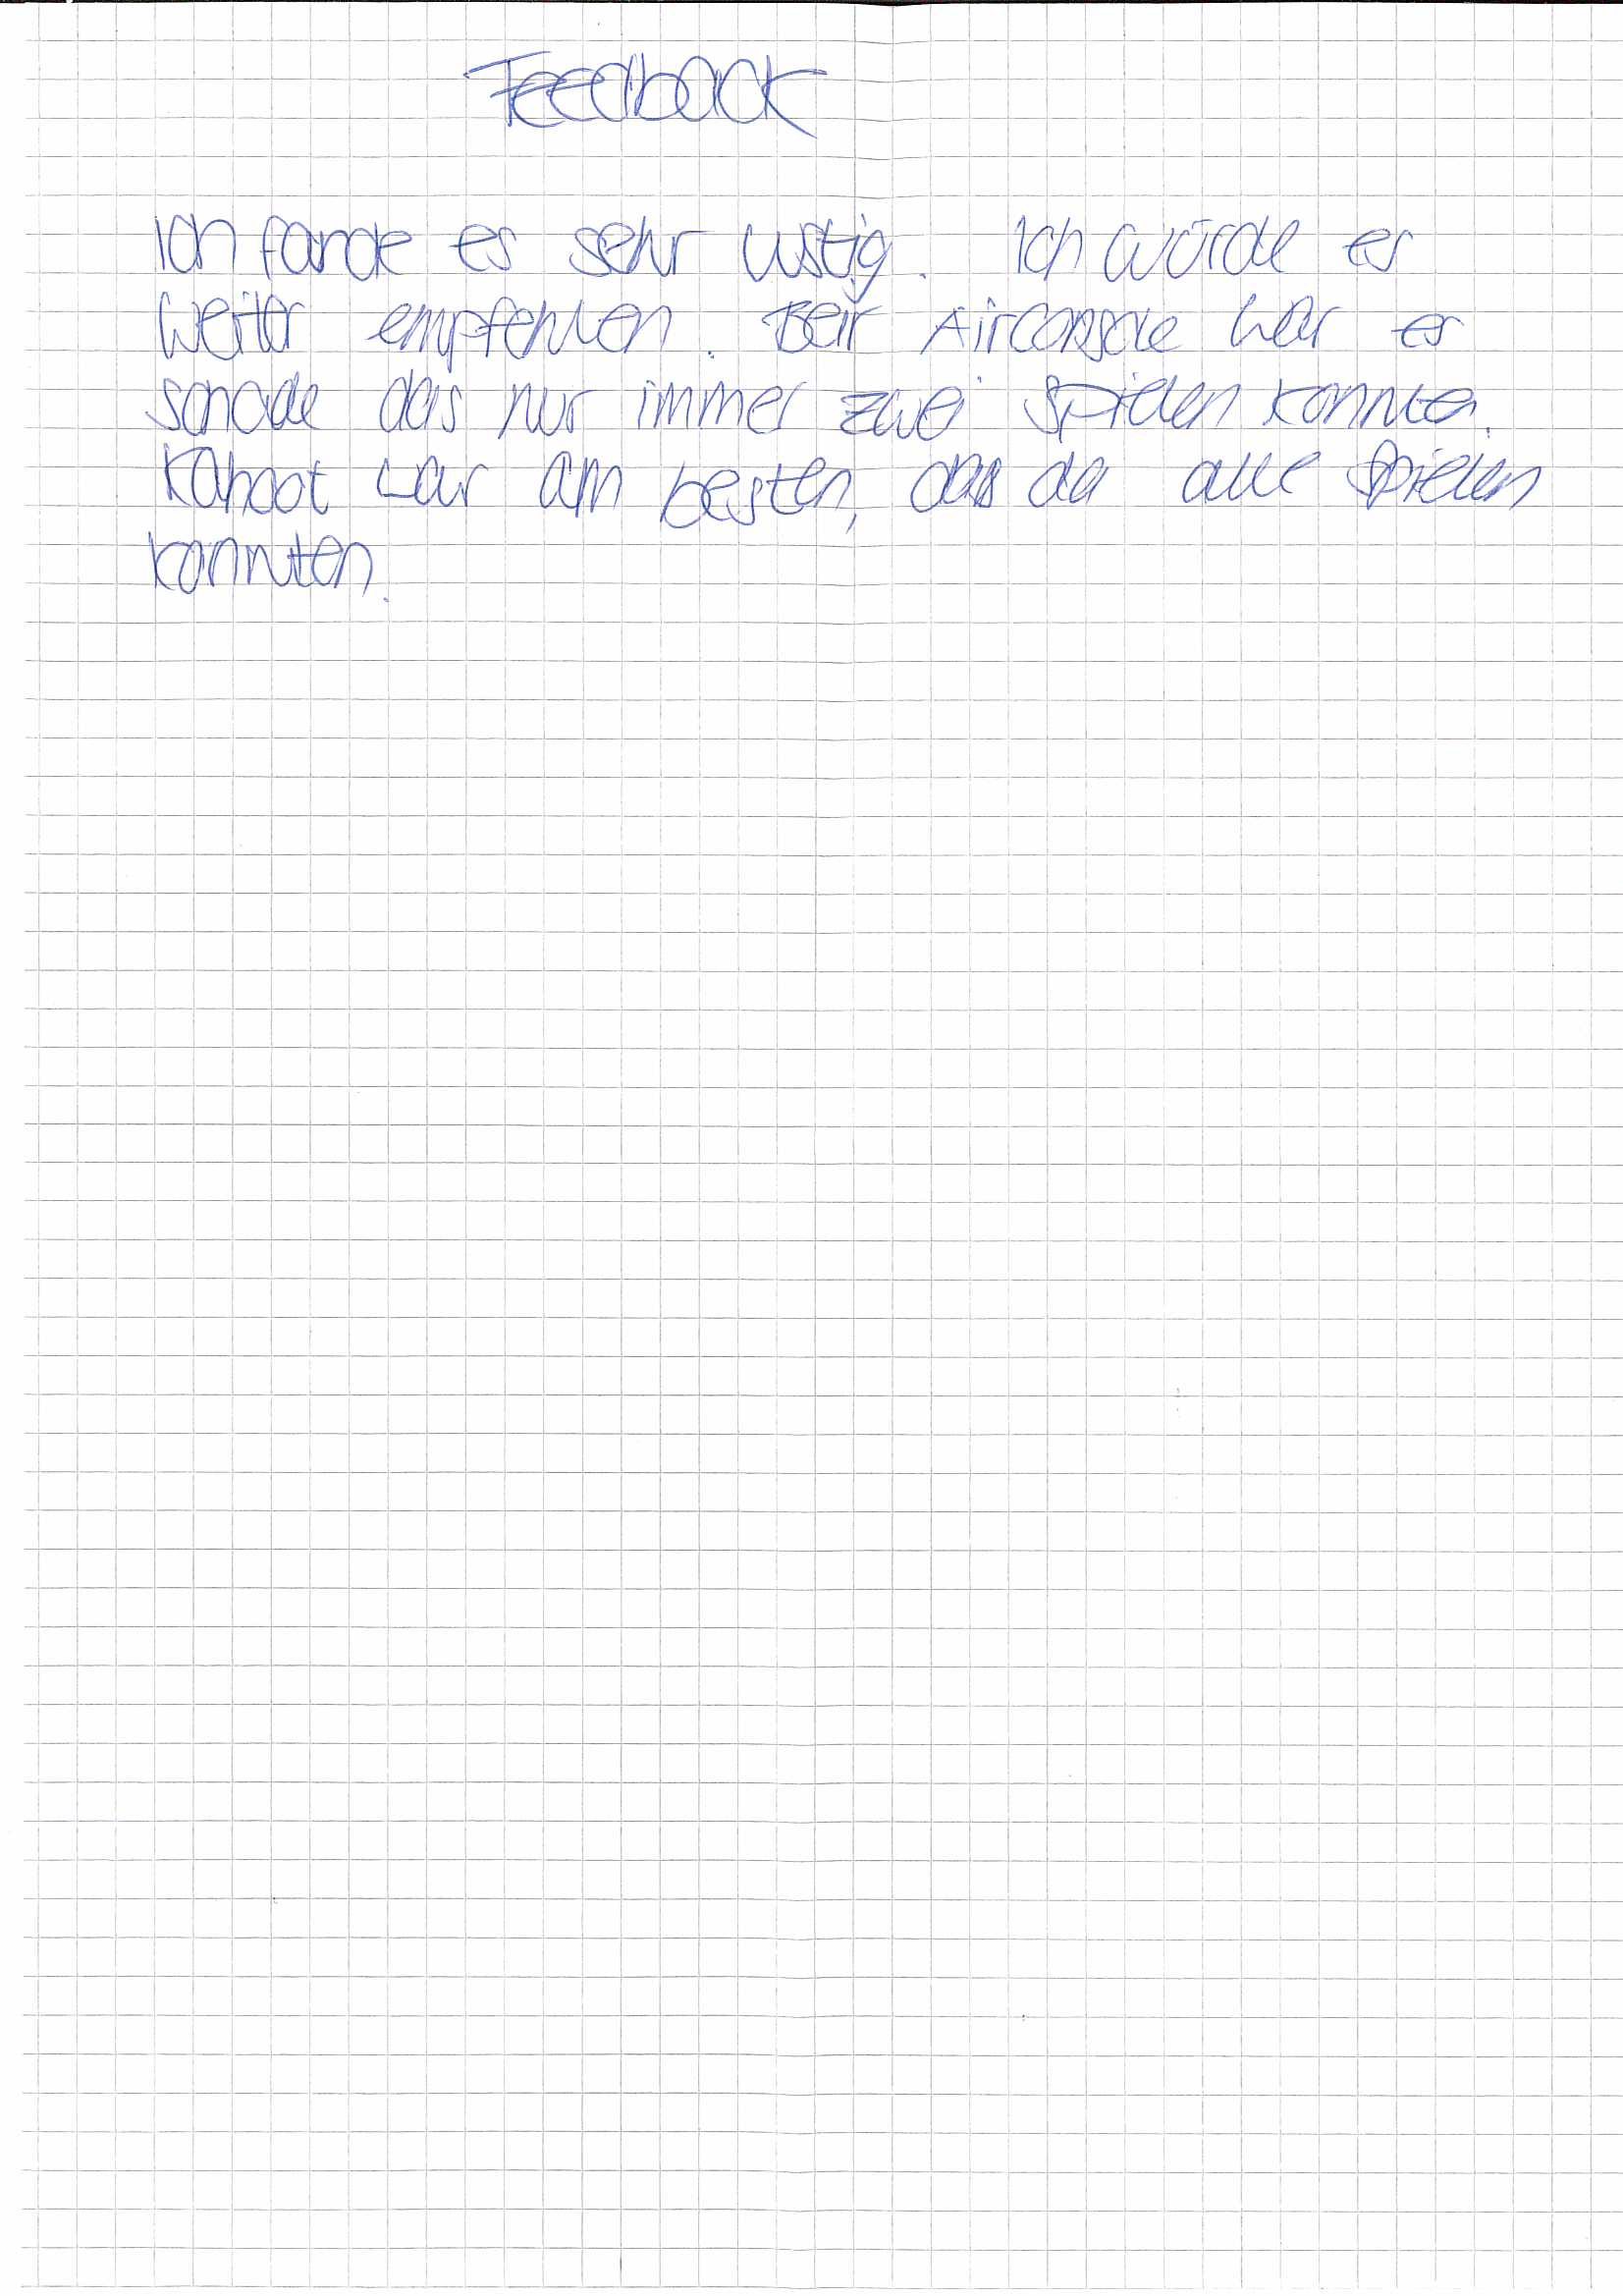 Feedback
Ich fande es sehr lustig. Ich würde es
weiter empfehlen. Bei Airconsole war es
schade das nur immer zwei spielen konnten.
Kahoot war am besten, das da alle spielen
konnten.